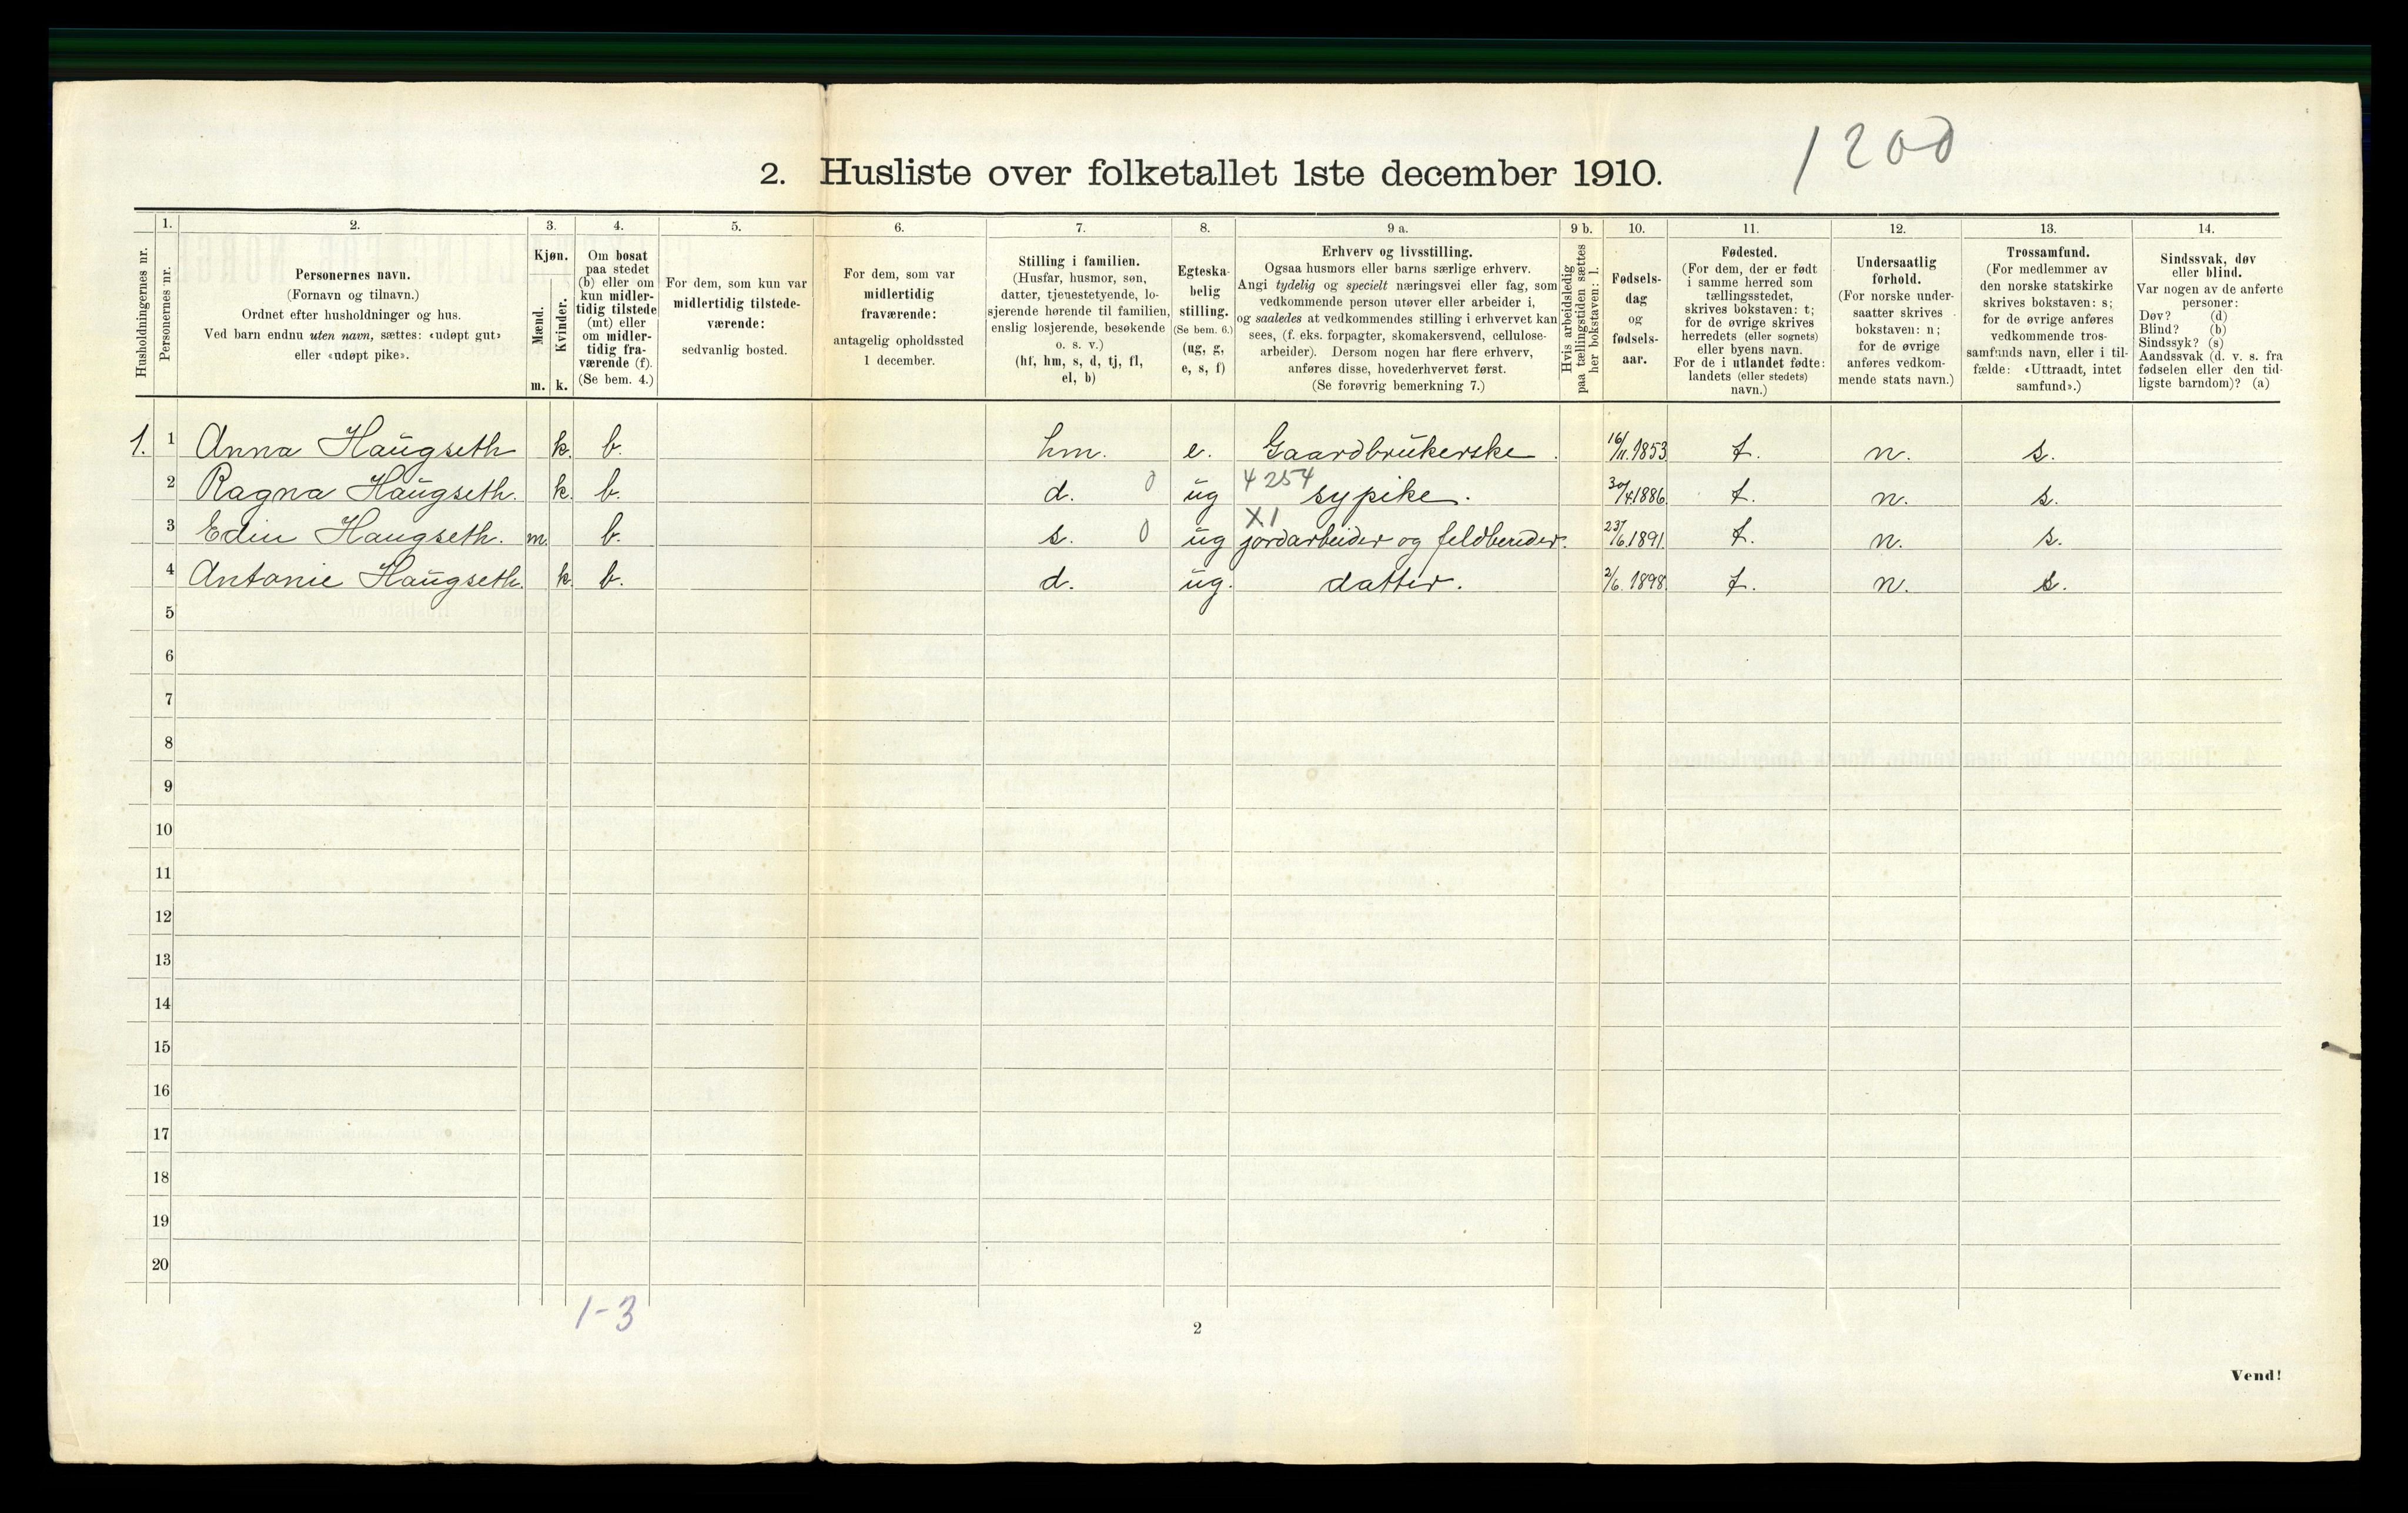 1200
2. Husliste over folketallet 1ste december 1910.
Husholdningernes nr.
1.
Personernes nr.
2.
Personernes navn.
(Fornavn og tilnavn.)
Ordnet efter husholdninger og hus.
Ved barn endnu uten navn, sættes: «udøpt gut»
eller «udøpt pike».
3.
Kjøn.
Mænd.
Kvinder.
m. k.
4.
Om bosat
paa stedet
(b) eller om
kun midler-
tidig tilstede
(mt) eller
om midler-
tidig fra-
værende (f).
(Se bem. 4.)
5.
For dem, som kun var
midlertidig tilstede-
værende:
sedvanlig bosted.
6.
For dem, som var
midlertidig
fraværende:
antagelig opholdssted
1 december.
7.
Stilling i familien.
(Husfar, husmor, søn,
datter, tjenestetyende, lo-
sjerende hørende til familien,
enslig losjerende, besøkende
o. s. v.)
(hf, hm, s, d, tj, fl,
el, b)
8.
Egteska-
belig
stilling.
(Se bem. 6.)
(ug, g,
e, s, f)
9 a.
Erhverv og livsstilling.
Ogsaa husmors eller barns særlige erhverv.
Angi tydelig og specielt næringsvei eller fag, som
vedkommende person utøver eller arbeider i,
og saaledes at vedkommendes stilling i erhvervet kan
sees, (f. eks. forpagter, skomakersvend, cellulose-
arbeider). Dersom nogen har flere erhverv,
anføres disse, hovederhvervet først.
(Se forøvrig bemerkning 7.)
9 b.
Hvis arbeidsledig
paa tællingstiden sættes
her bokstaven: l.
10.
Fødsels-
dag
og
fødsels-
aar.
11.
Fødested.
(For dem, der er født
i samme herred som
tællingsstedet,
skrives bokstaven: t;
for de øvrige skrives
herredets (eller sognets)
eller byens navn.
For de i utlandet fødte:
landets (eller stedets)
navn.)
12.
Undersaatlig
forhold.
(For norske under-
saatter skrives
bokstaven: n;
for de øvrige
anføres vedkom-
mende stats navn.)
13.
Trossamfund.
(For medlemmer av
den norske statskirke
skrives bokstaven: s;
for de øvrige anføres
vedkommende tros-
samfunds navn, eller i til-
fælde: «Uttraadt, intet
samfund».)
14.
Sindssvak, døv
eller blind.
Var nogen av de anførte
personer:
Døv? (d)
Blind? (b)
Sindssyk? (s)
Aandssvak (d. v. s. fra
fødselen eller den tid-
ligste barndom)? (a)
1. 1 Anna Haugseth k. b. hm. e. Gaardbrukerske. 16/11.1853 t. n. s.
2 Ragna Haugseth. k. b. d. 0 ug 4254 sypike. 30/4.1886 t. n. s.
3 Edin Haugseth. m. b. s. 0 ug X1 jordarbeider og feldbereder. 23/6.1891. t. n. s.
4 Antonie Haugseth. k. b. d. ug. datter. 2/6.1898. t. n. s.
5
6
7
8
9
10
11
12
13
14
15
16
17
18
19
20
1-3
2
Vend!